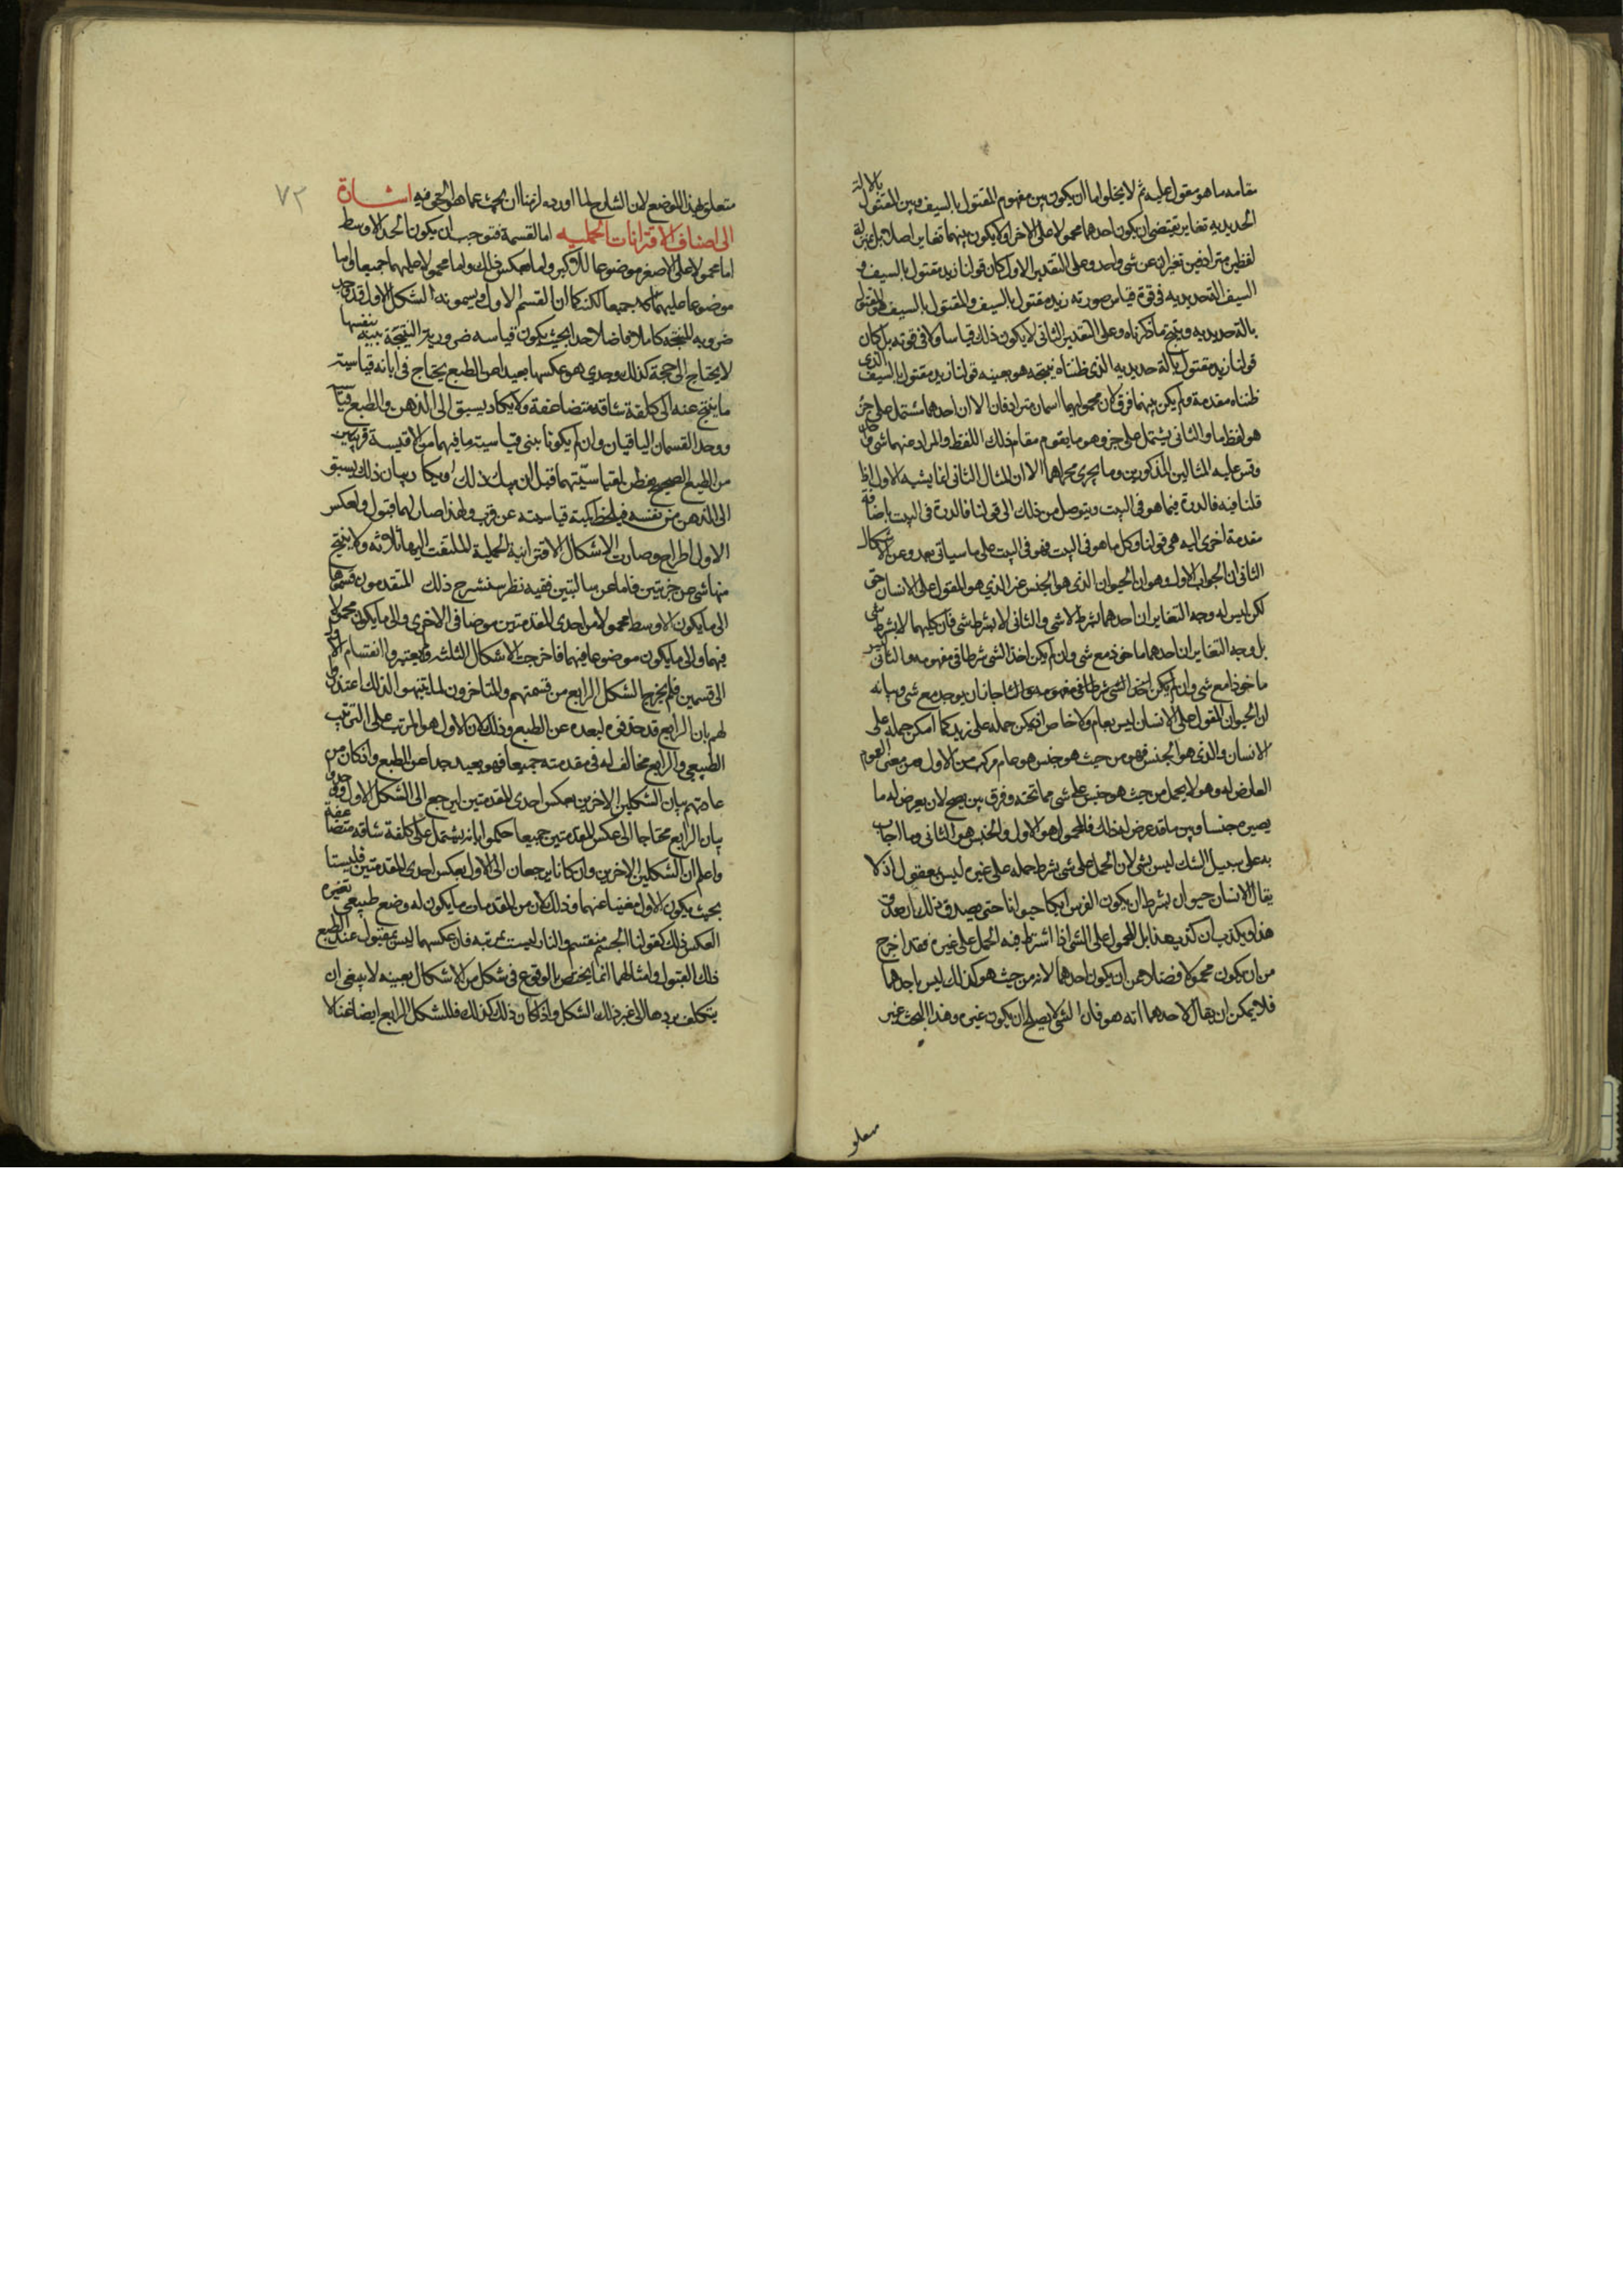 مقامه ما هو مقول عليه ثم لا يخلوا ما ان يكون بين مفهوم المقتول بالسيف وبين المقتول بالالة
الحديدية تغاير يقتضى ان يكون احدهما محمولا على الاخر او لا يكون بينهما تغاير اصلا بل بمنزلة
لفظين مترادفين تعبران عن شى واحد وعلى التقدير الاول كان قولنا زيد مقتول بالسيف و
السيف الة حديدية فى قوة قياس صورته زيد مقتول بالسيف والمقتول بالسيف هو المقتول
بالة حديدية وينتج ما ذكرناه وعلى التقدير الثانى لا يكون ذلك قياسا ولا فى قوته بل كان
قولنا زيد مقتول بالة حديدية الذى ظنناه نتيجة هو بعينه قولنا زيد مقتول بالسيف الذى
ظنناه مقدمة ولم يكن بينهما فرق لان محموليهما اسمان مترادفان الا ان احدهما مشتمل على جزء
هو لفظ ما والثانى يشتمل على جزء هو ما يقوم مقام ذلك اللفظ والمراد منهما شى واحد
وقس عليه المثالين المذكورين وما يجرى مجراهما الا ان المثال الثانى انما يشبه الاول اذا
قلنا فيه فالدرة فيما هو فى البيت ويتوصل من ذلك الى قولنا فالدرة فى البيت باضافة
مقدمة اخرى اليه هى قولنا وكل ما هو فى البيت فهو فى البيت على ما سياتى بعد وعن الاشكال
الثانى ان الجواب الاول وهو ان الحيوان الذى هو الجنس غير الذى هو المقول على الانسان حق
لكن ليس له وجه التغاير ان احدهما بشرط لا شى والثانى لا بشرط شى فان كليهما لا بشرط شى
بل وجه التغاير ان احدهما ماخوذ مع شى وان لم يكن اخذ الشى شرطا فى مفهومه والثانى غير
ماخوذ مع شى وان لم يكن اخذ الشى شرطا فى مفهومه ولذلك جاز ان يوجد مع شى وبيانه
ان الحيوان المقول على الانسان ليس بعام ولا خاص اذ يمكن حمله على زيد كما امكن حمله على
الانسان والذى هو الجنس فهو من حيث هو جنس هو عام مركب من الاول ومن معنى العموم
العارض له وهو لا يحمل من حيث هو جنس على شى مما تحته وفرق بين يصح لان يعرض له ما
يصيره جنسا وبين ما قد عرض له ذلك فالمحمول هو الاول والجنس هو الثانى وما اجاب
به على سبيل الشك ليس بشى لان الحمل على شى بشرط حمله على غيره ليس بمعقول اذ لا
يقال الانسان حيوان بشرط ان يكون الفرس ايضا حيوانا حتى يصدق ذلك ان صدق
هذا ويكذب ان كذب هذا بل المحمول على الشى اذا اشترط فيه الحمل على غيره فقد اخرج
من ان يكون محمولا فضلا عن ان يكون احدهما لانه من حيث هو كذلك ليس باحدهما
فلا يمكن ان يقال لاحدهما انه هو فان الشى لا يصلح ان يكون غيره وهذا البحث غير
متعلق بهذا الموضع لان الشارح لما اورده لزمنا ان نبحث عما هو الحق فيه اشارة
الى اصناف الاقترانات الحملية اما القسمة فتوجب ان يكون الحد الاوسط
اما محمولا على الاصغر موضوعا للاكبر واما بعكس ذلك واما محمولا عليهما جميعا واما
موضوعا عليهما كله جميعا لكنه كما ان القسم الاول ويسمونه الشكل الاول قد وجد
ضرورية للنتيجة كاملا فاضلا جدا بحيث يكون قياسه ضرورية النتيجة بينة بنفسها
لا يحتاج الى حجة كذلك وجد الذى هو عكسها بعيدا عن الطبع يحتاج فى ابانة قياسية
ما ينتج عنه الى كلفة شاقة متضاعفة ولا يكاد يسبق الى الذهن والطبع قياسيته
ووجد القسمان الباقيان وان لم يكونا بينى قياسية ما فيهما من الاقيسة قريبين
من الطبع الصحيح يفطن لقياسيتهما قبل ان يبين ذلك او يكاد بيان ذلك يسبق
الى الذهن من نفسه فيلحظ لمية قياسيته عن قرب ولهذا صار لهما قبول ولعكس
الاول اطراح وصارت الاشكال الاقترانية الحملية الملتفت اليها ثلاثة ولا ينتج
منها شى عن جزئيتين فاما عن سالبتين ففيه نظر سنشرح ذلك المتقدمون قسموها
الى ما يكون الاوسط محمولا من احدى المقدمتين موضعا فى الاخرى والى ما يكون محمولا
فيهما والى ما يكون موضوعا فيهما فاخرجت الاشكال الثلثة ولم يعتبروا انقسام الاول
الى قسمين فلم يخرج الشكل الرابع من قسمتهم والمتاخرون لما تنبهوا لذلك اعتذروا
لهم بان الرابع قد حذفوه لبعده عن الطبع وذلك لان الاول هو المرتب على الترتيب
الطبيعى والرابع مخالف له فى مقدمتيه جميعا فهو بعيد جدا عن الطبع واذ كان من
عادتهم بيان الشكلين الاخرين بعكس احدى المقدمتين ليرجع الى الشكل الاول وجدوا
بيان الرابع محتاجا الى عكس المقدمتين جميعا حكموا بانه يشتمل على كلفة شاقة متضاعفة
واعلم ان الشكلين الاخرين وان كانا يرجعان الى الاول بعكس احدى المقدمتين فليستا
بحيث يكون الاول مغنيا عنهما وذلك لان من المقدمات ما يكون له وضع طبيعى تغيره
العكس ذلك كقولنا الجسم منقسم والنار ليست بمرتبة فان عكسهما ليس بمقبول عند الطبع
ذلك القبول وامثالهما انما يختص بالوقوع فى شكل من الاشكال بعينه لا ينبغى ان
يتكلف بردها الى غير ذلك الشكل واذا كان ذلك كذلك فللشكل الرابع ايضا غنا لا
٧٢